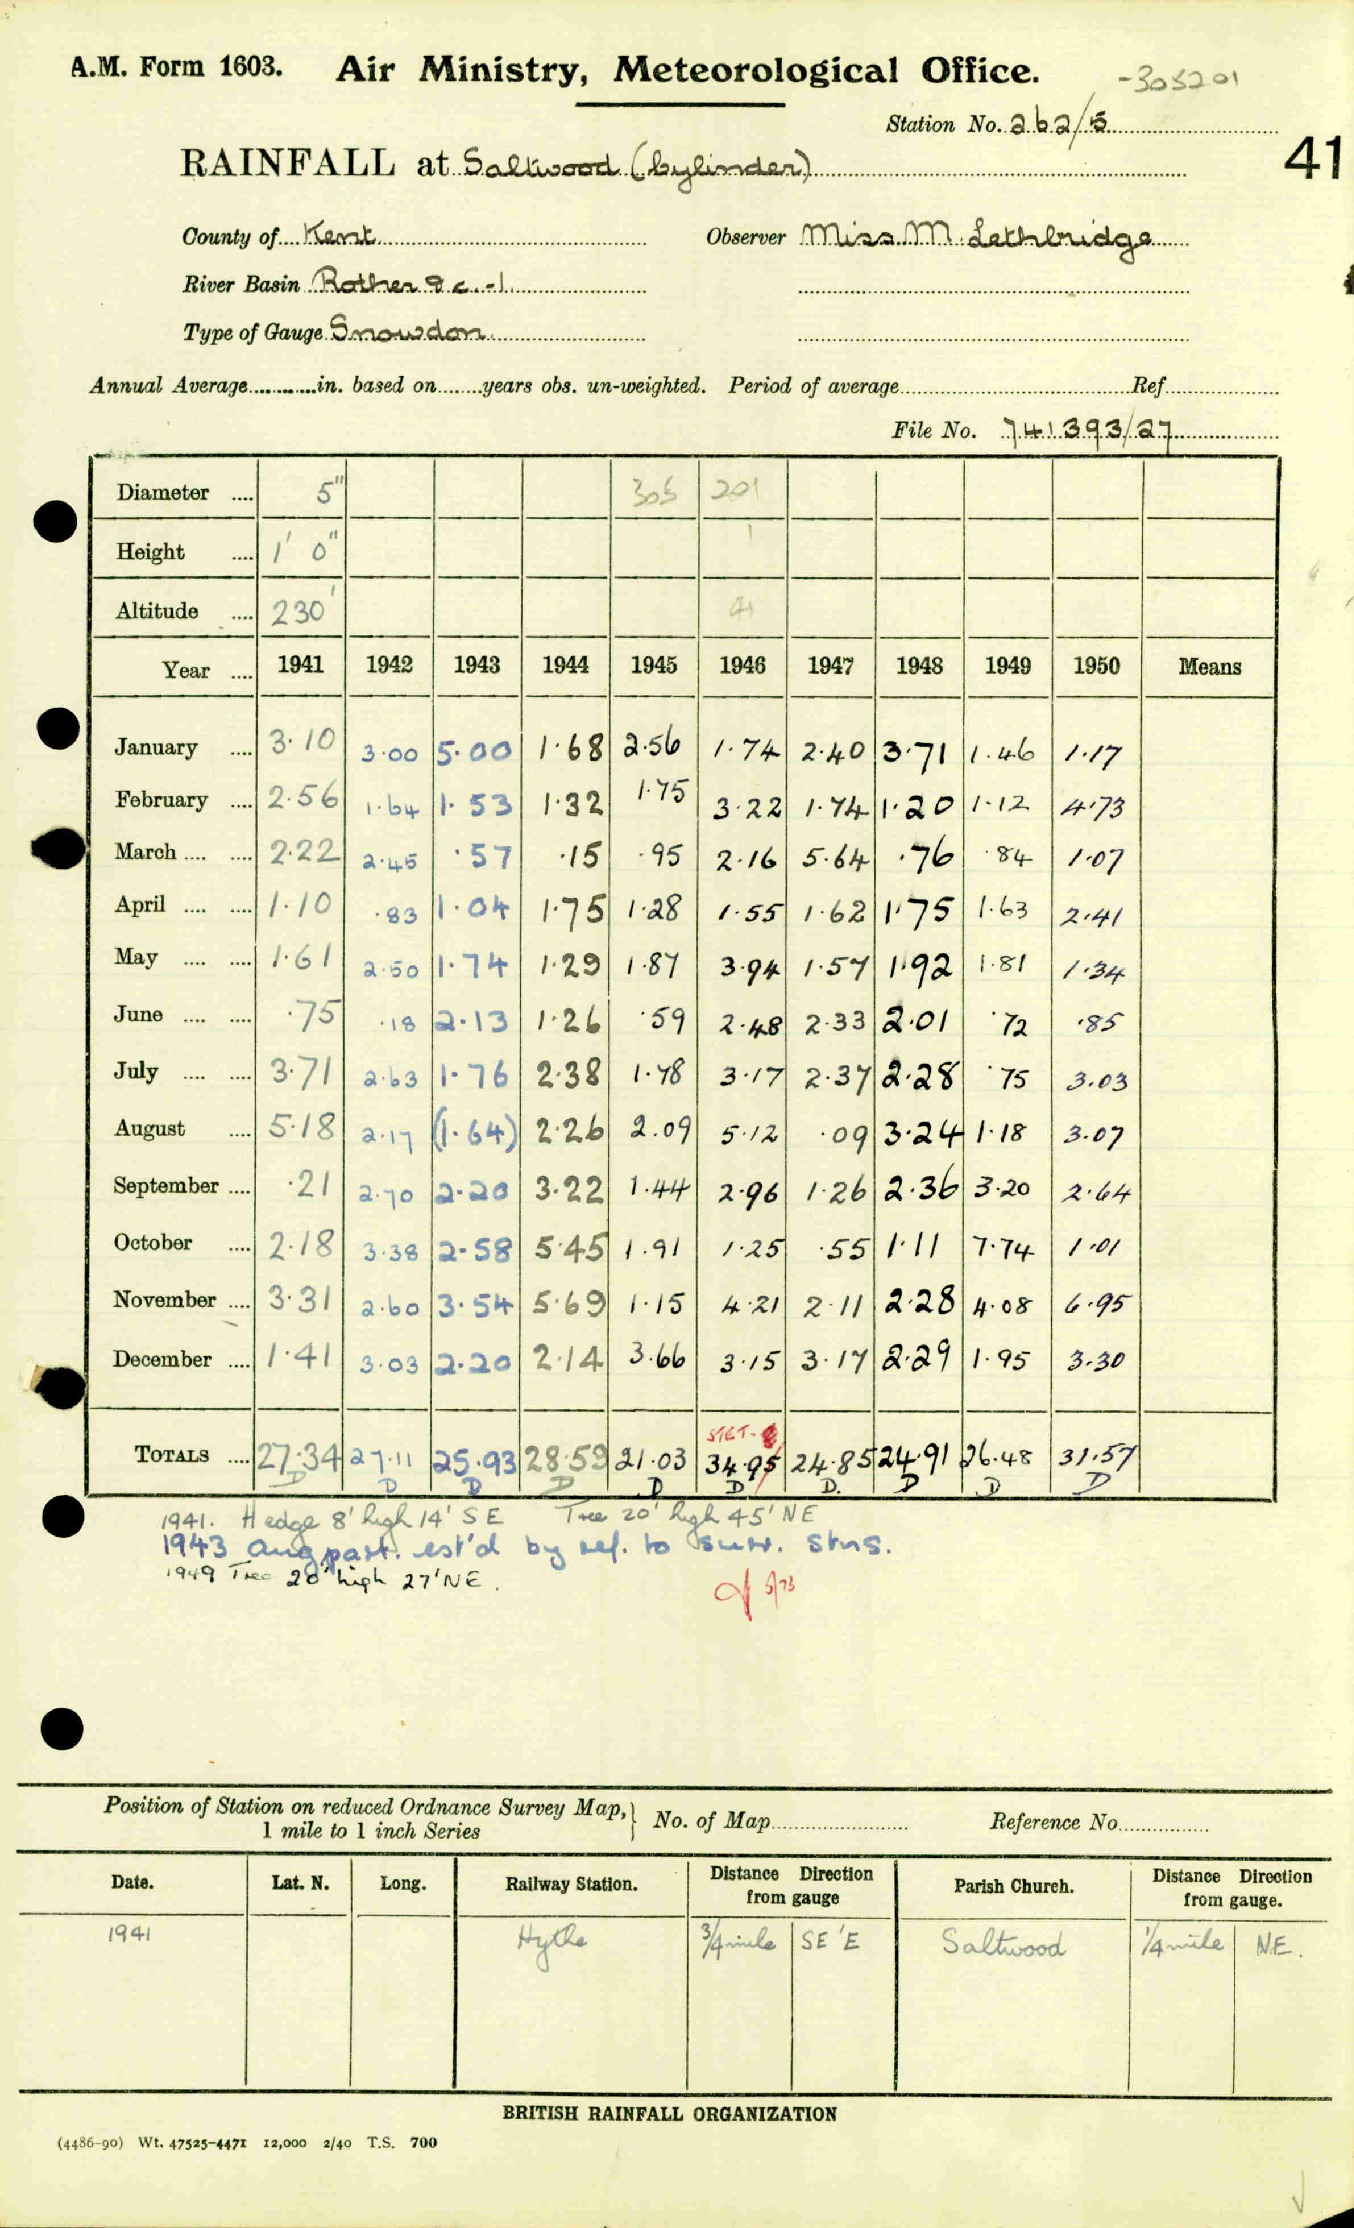 A.M. Form 1603. Air Ministry, Meteorological Office. -305201
Station No. 262/5
41
RAINFALL at Saltwood (Cylinder)
County of Kent Observer Miss M. Lethbridge
River Basin Rother &c. -1
Type of Gauge Snowdon
Annual Average in. based on years obs. un-weighted. Period of average Ref
File No. 741393/27
Diameter .... 5" 305 201
Height .... 1' 0" 1
Altitude .... 230' 41
Year .... 1941 1942 1943 1944 1945 1946 1947 1948 1949 1950 Means
January .... 3.10 3.00 5.00 1.68 2.56 1.74 2.40 3.71 1.46 1.17
February .... 2.56 1.64 1.53 1.32 1.75 3.22 1.74 1.20 1.12 4.73
March .... .... 2.22 2.45 .57 .15 .95 2.16 5.64 .76 .84 1.07
April .... .... 1.10 .83 1.04 1.75 1.28 1.55 1.62 1.75 1.63 2.41
May .... .... 1.61 2.50 1.74 1.29 1.87 3.94 1.57 1.92 1.81 1.34
June .... .... .75 .18 2.13 1.26 .59 2.48 2.33 2.01 .72 .85
July .... .... 3.71 2.63 1.76 2.38 1.78 3.17 2.37 2.28 .75 3.03
August .... 5.18 2.17 (1.64) 2.26 2.09 5.12 .09 3.24 1.18 3.07
September .... .21 2.70 2.20 3.22 1.44 2.96 1.26 2.36 3.20 2.64
October .... 2.18 3.38 2.58 5.45 1.91 1.25 .55 1.11 7.74 1.01
November .... 3.31 2.60 3.54 5.69 1.15 4.21 2.11 2.28 4.08 6.95
December .... 1.41 3.03 2.20 2.14 3.66 3.15 3.17 2.29 1.95 3.30
STET.
TOTALS .... 27.34 27.11 25.93 28.59 21.03 34.95 24.85 24.91 26.48 31.57
D D D D D D D. D D D
1941. Hedge 8' high 14' SE Tree 20' high 45' NE
1943 Aug part. est'd by ref. to surr. stns.
1949 Tree 20' high 27' NE.
5/73
Position of Station on reduced Ordnance Survey Map, } No. of Map Reference No.
1 mile to 1 inch Series
Date. Lat. N. Long. Railway Station. Distance Direction from gauge Parish Church. Distance Direction from gauge.
1941 Hythe 3/4 mile SE'E Saltwood 1/4 mile NE.
BRITISH RAINFALL ORGANIZATION
(4486-90) Wt. 47525-4471 12,000 2/40 T.S. 700